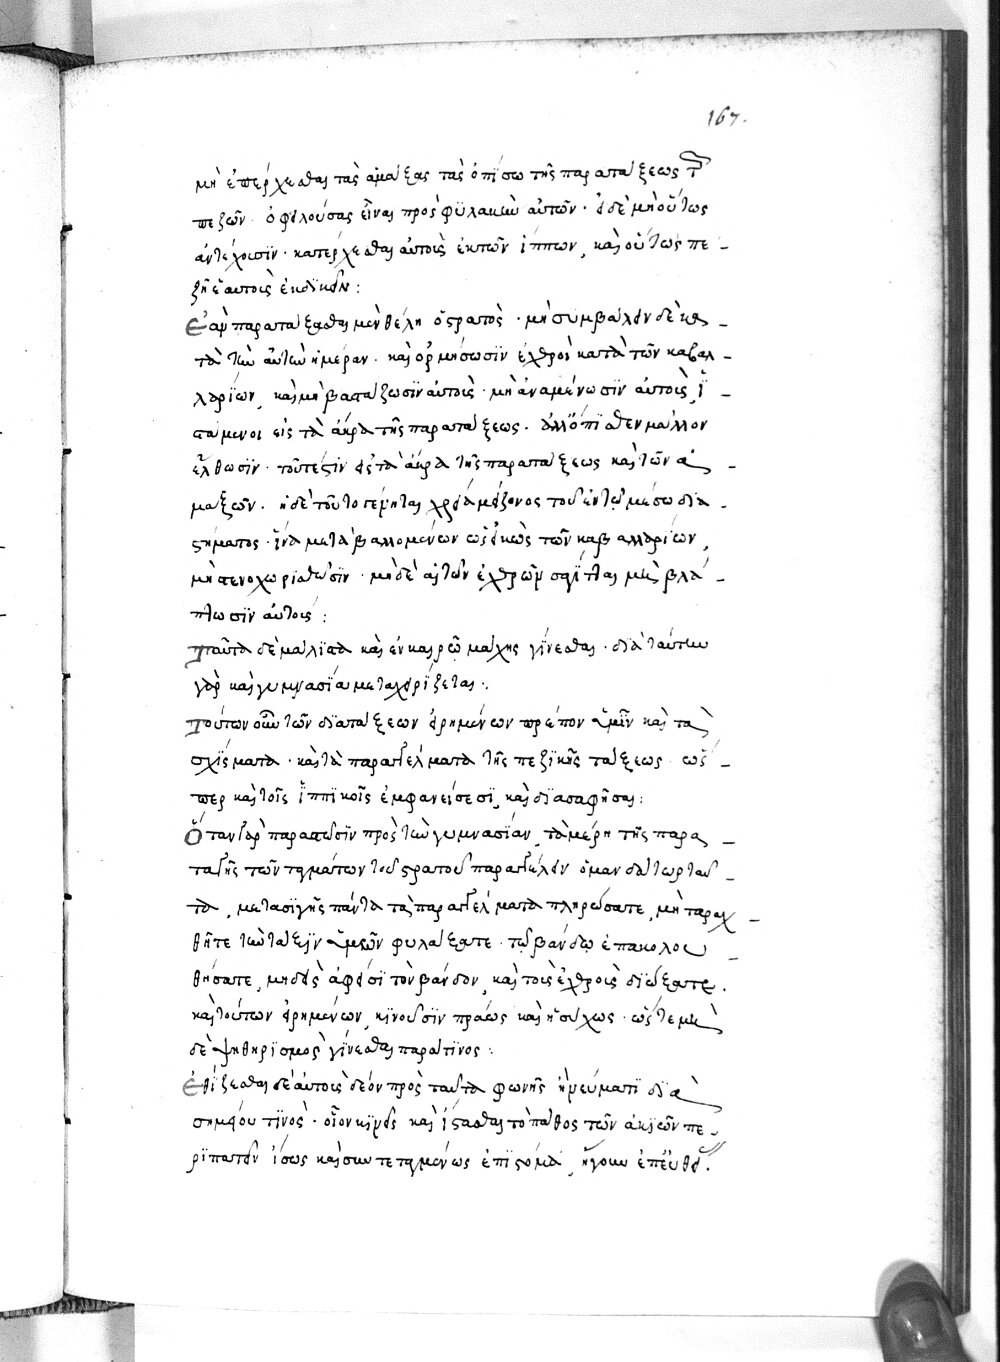 167.
μὴ ἐπέρχεσθαι τὰς ἁμάξας τὰς ὀπίσω τῆς παρατάξεως τῶν
πεζῶν ὀφειλούσας εἶναι πρὸς φυλακὴν αὐτῶν· εἰ δὲ μὴ οὕτως
ἀντέχοισϊν· κατέρχεσθαι αὐτοὺς ἐκ τῶν ἵππων, καὶ οὕτως πε-
ζῇ ἑαυτοὺς ἐκδϊκεῖν:
Ἐὰν παρατάξασθαι μὲν θέλῃ ὁ στρατὸς· μὴ συμβάλειν δὲ κα-
τὰ τὴν αὐτὴν ἡμέραν· καὶ ὁρμήσωσϊν ἐχθροὶ κατὰ τῶν καβαλ-
λαρίων, καὶ μὴ βαστάζωσϊν αὐτοὺς· μὴ ἀναμένωσϊν αὐτοὺς ἱ-
στάμενοι εἰς τὰ ἄκρα τῆς παρατάξεως. ἀλλ' ὄπϊσθεν μᾶλλον
ἔλθωσϊν· τοῦτέστϊν εἰς τὰ ἄκρα τῆς παρατάξεως καὶ τῶν ἁ-
μαξῶν. εἰ δὲ τοῦτο γένηται χρεία μείζονος τοῦ ἐν τῷ μέσω δϊα-
στήματος· ἵνα μεταβαλλομένων ὡς εἰκὸς τῶν καβαλλαρίων,
μὴ στενοχωρϊσθῶσϊν· μηδὲ αἱ τῶν ἐχθρῶν σαγίτται μὲν βλά-
πτωσϊν αὐτούς:
Ταῦτα δὲ μάλϊστα καὶ ἐν καιρῷ μάχης γίνεσθαι· δϊὰ ταύτην
γὰρ καὶ γυμνασία μεταχειρίζεται:
Τούτων οὖν τῶν δϊατάξεων εἰρημένων πρέπον ἡμῖν καὶ τὰ
σχίσματα· καὶ τὰ παραγγέλματα τῆς πεζϊκῆς τάξεως ὡς-
περ καὶ τοῖς ἱππϊκοῖς ἐμφανείσεσϊ, καὶ δϊασαφῆσαι:
Ὅταν γὰρ παραστῶσϊν πρὸς τὴν γυμνασίαν, τὰ μέρη τῆς παρα-
ταγῆς τῶν ταγμάτων τοῦ στρατοῦ παραγγέλειν ὁ μανδάτωρ ταῦ-
τα, μετὰ σϊγῆς πάντα τὰ παραγγέλματα πληρώσατε, μὴ ταραχ-
θῆτε τὴν τάξϊν ὑμῶν φυλάξατε· τῷ βάνδῳ ἐπακολου-
θήσατε, μηδεὶς ἀφείσϊ τὸν βάνδον, καὶ τοὺς ἐχθροὺς δϊώξατε.
καὶ τούτων εἰρημένων, κϊνοῦσϊν πράως καὶ ἡσύχως· ὥστε μη-
δὲ ψηθηρισμὸς γίνεσθαι παρά τϊνος:
Ἐθίζεσθαι δὲ αὐτοὺς δέον πρὸς ταῦτα φωνῆς ἢ νεύματι δϊὰ
σημείου τϊνὸς· οἷον κϊνεῖν καὶ ἵστασθαι τὸ πάθος τῶν ἀκιῶν πε-
ρϊπατεῖν ἴσως καὶ συντεταγμένως ἐπϊστομά, ἤγουν ἐπ' εὐθεί.